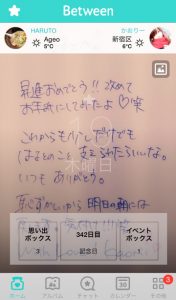 Between
HARUTO
Ageo
5°C
かおりー
新宿区
6°C
昇進おめでとう!! 改めて
お手紙にしてみたよ♡笑
19
木曜日
これからも少しだけでも
はるとのこと支えられたらいいな。
いつもありがとう。
恥ずかしいから明日の朝には
思い出
ボックス
3
342日目
記念日
イベント
ボックス
8
ホーム
アルバム
チャット
カレンダー
その他